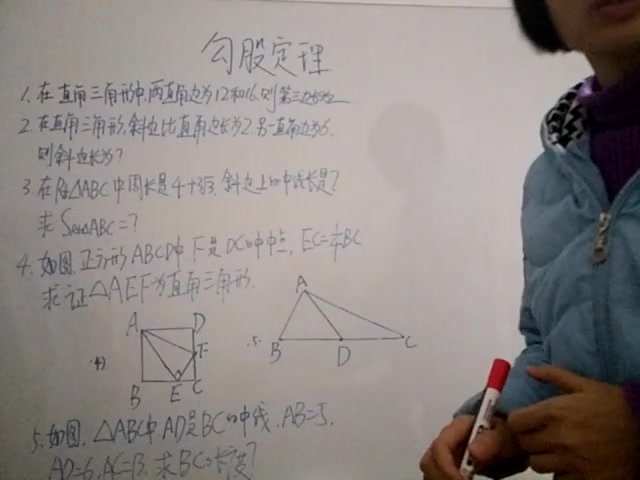 勾股定理
1. 在直角三角形中,两直角边为12和16,则第三边长为
2. 在直角三角形,斜边比直角边长为2,另一直角边为6,
则斜边长为?
3. 在Rt△ABC中周长是4+2√3,斜边上的中线长是2
求SRt△ABC=?
4. 如图.正方形ABCD中,F是DC的中点,EC=1/4BC
求证△AEF为直角三角形.
A D
F
B E C
4)
A
B D C
5.
5. 如图,△ABC中AD是BC的中线,AB=5,
AD=6,AC=13,求BC的长度?